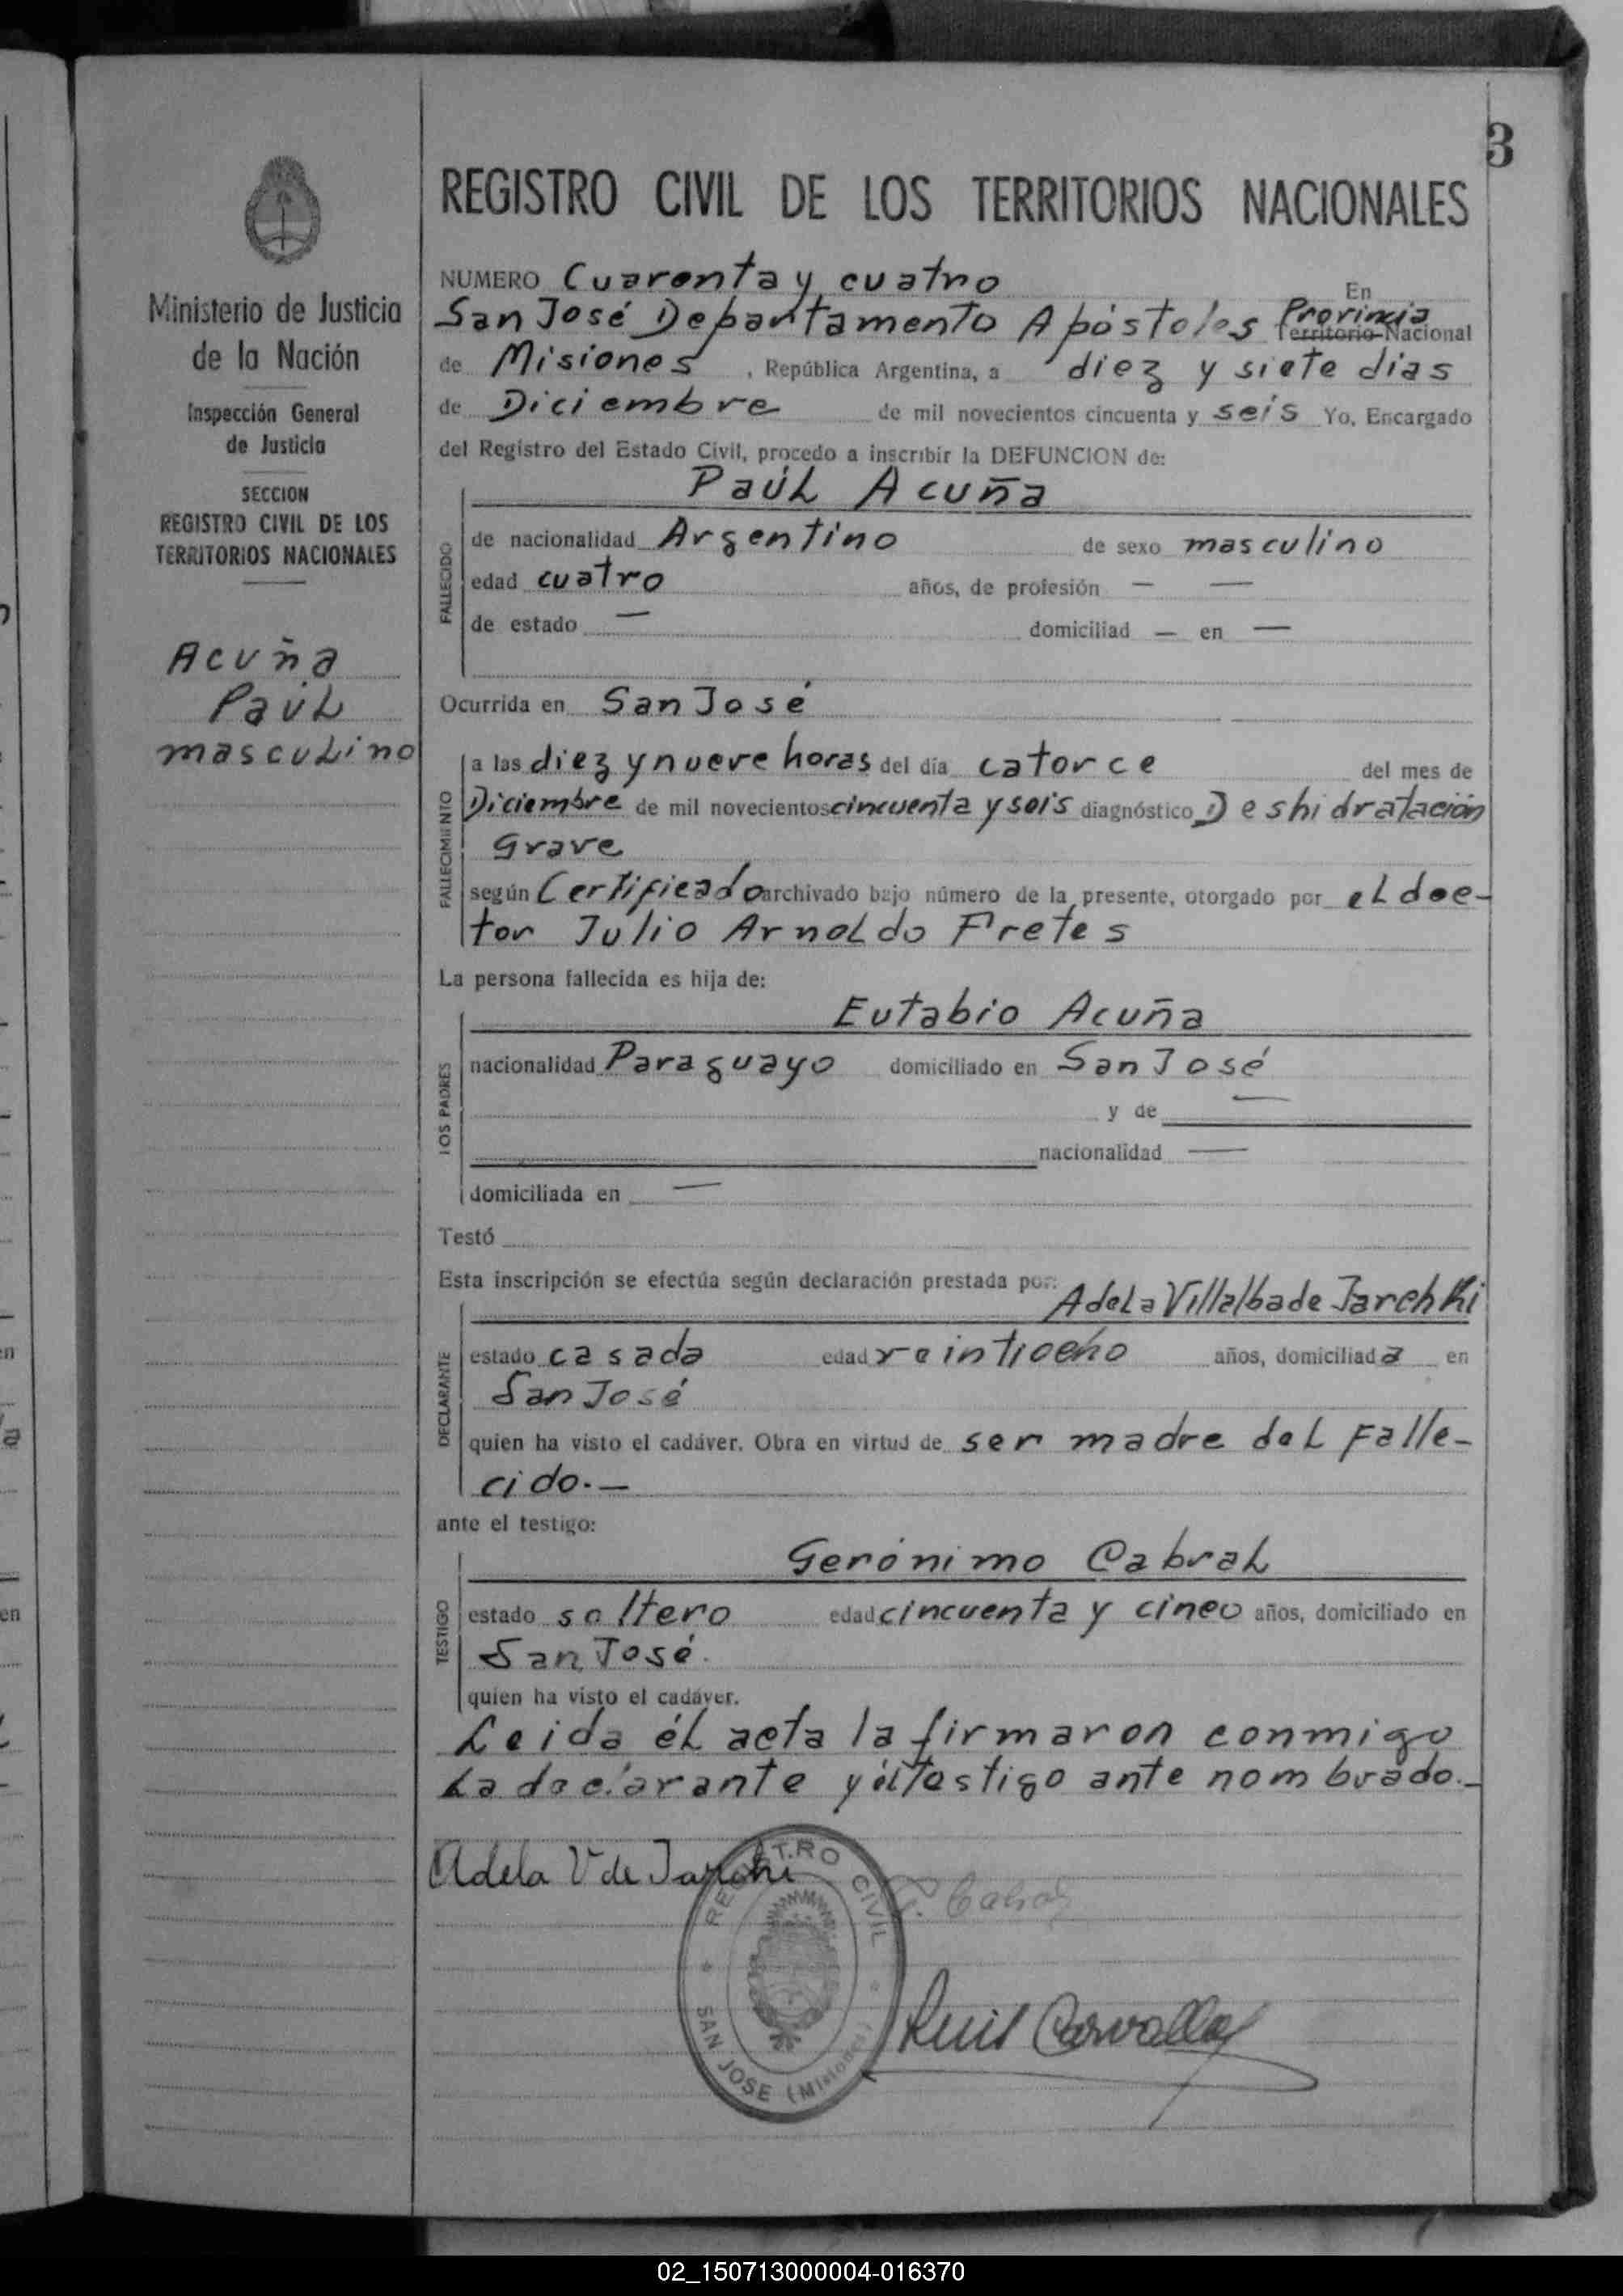 3
REGISTRO CIVIL DE LOS TERRITORIOS NACIONALES
Ministerio de Justicia
de la Nación
Inspección General
de Justicia
SECCION
REGISTRO CIVIL DE LOS
TERRITORIOS NACIONALES
Acuña
Paúl
masculino
NUMERO Cuarenta y cuatro En
San José Departamento Apóstoles Provincia Territorio Nacional
de Misiones, República Argentina, a diez y siete dias
de Diciembre de mil novecientos cincuenta y seis Yo, Encargado
del Registro del Estado Civil, procedo a inscribir la DEFUNCION de:
Paúl Acuña
FALLECIDO
de nacionalidad Argentino de sexo masculino
edad cuatro años, de profesión — —
de estado — domiciliad — en —
Ocurrida en San José
FALLECIMIENTO
a las diez y nueve horas del día catorce del mes de
Diciembre de mil novecientos cincuenta y seis diagnóstico Deshidratación
Grave
según Certificado archivado bajo número de la presente, otorgado por el doc-
tor Julio Arnoldo Fretes
La persona fallecida es hija de:
Eutabio Acuña
LOS PADRES
nacionalidad Paraguayo domiciliado en San José
y de —
nacionalidad —
domiciliada en —
Testó
Esta inscripción se efectúa según declaración prestada por:
Adela Villalba de Jarchki
DECLARANTE
estado casada edad veintiocho años, domiciliada en
San José
quien ha visto el cadáver. Obra en virtud de ser madre del Falle-
cido.—
ante el testigo:
Gerónimo Cabral
TESTIGO
estado soltero edad cincuenta y cinco años, domiciliado en
San José.
quien ha visto el cadáver.
Leida él acta la firmaron conmigo
La declarante y él testigo ante nombrado.—
Adela V de
G. Cabral
REGISTRO CIVIL
SAN JOSE (Misiones)
Luis Carvallo
02_150713000004-016370